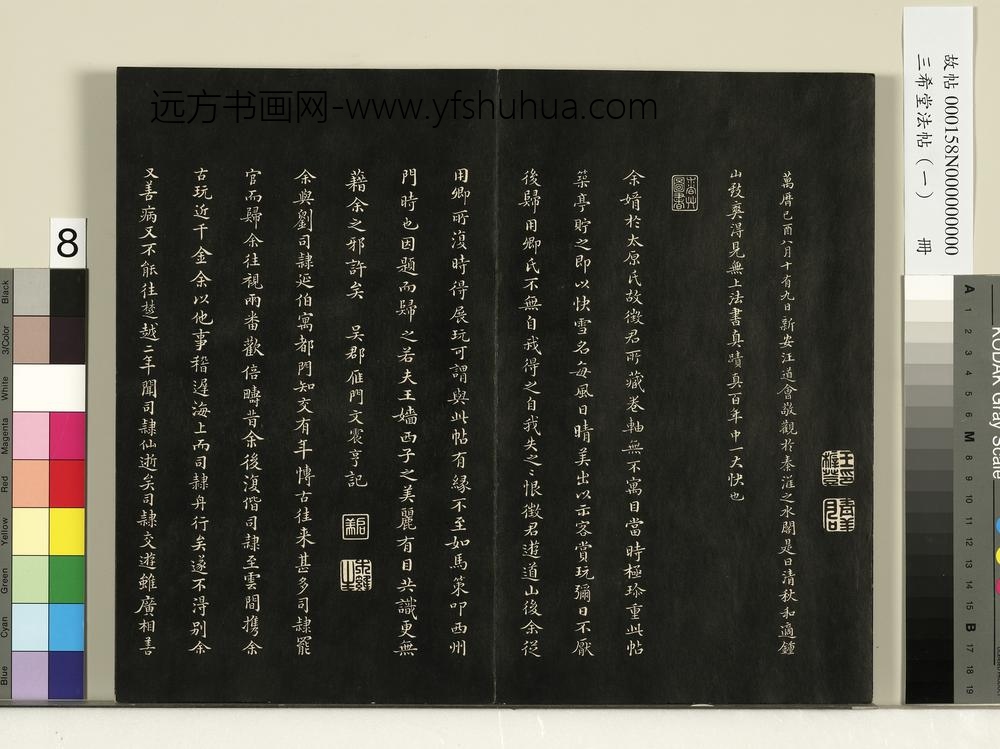 萬曆己酉八月十有九日新安江道會敬觀於秦淮之水閣是日清秋和適鍾
山致爽得見無上法書真蹟真百年中一大快也
余婿於太原氏故徵君所藏卷軸無不寓目當時極珍重此帖
築亭貯之即以快雪名每風日晴美出以示客賞玩彌日不厭
後歸用卿氏不無自我得之自我失之之恨徵君遊道山後余從
用卿所復時得展玩可謂與此帖有緣不至如馬策叩西州
門時也因題而歸之若夫王嬙西子之美麗有目共識更無
藉余之邪許矣 吳郡雁門文震亨記
余與劉司隸延伯寓都門知交有年博古往來甚多司隸罷
官而歸余往視兩番歡倍疇昔余後復偕司隸至雲間攜余
古玩近千金余以他事稽遲海上而司隸舟行矣遂不得別余
又善病又不能往楚越二年聞司隸仙逝矣司隸交遊雖廣相善
远方书画网-www.yfshuhua.com
故帖 000158N000000000
三希堂法帖（一） 冊
8
Black
3/Color
White
Magenta
Red
Yellow
Green
Cyan
Blue
KODAK Gray Scale
A 1 2 3 4 5 6 M 8 9 10 11 12 13 14 15 B 17 18 19